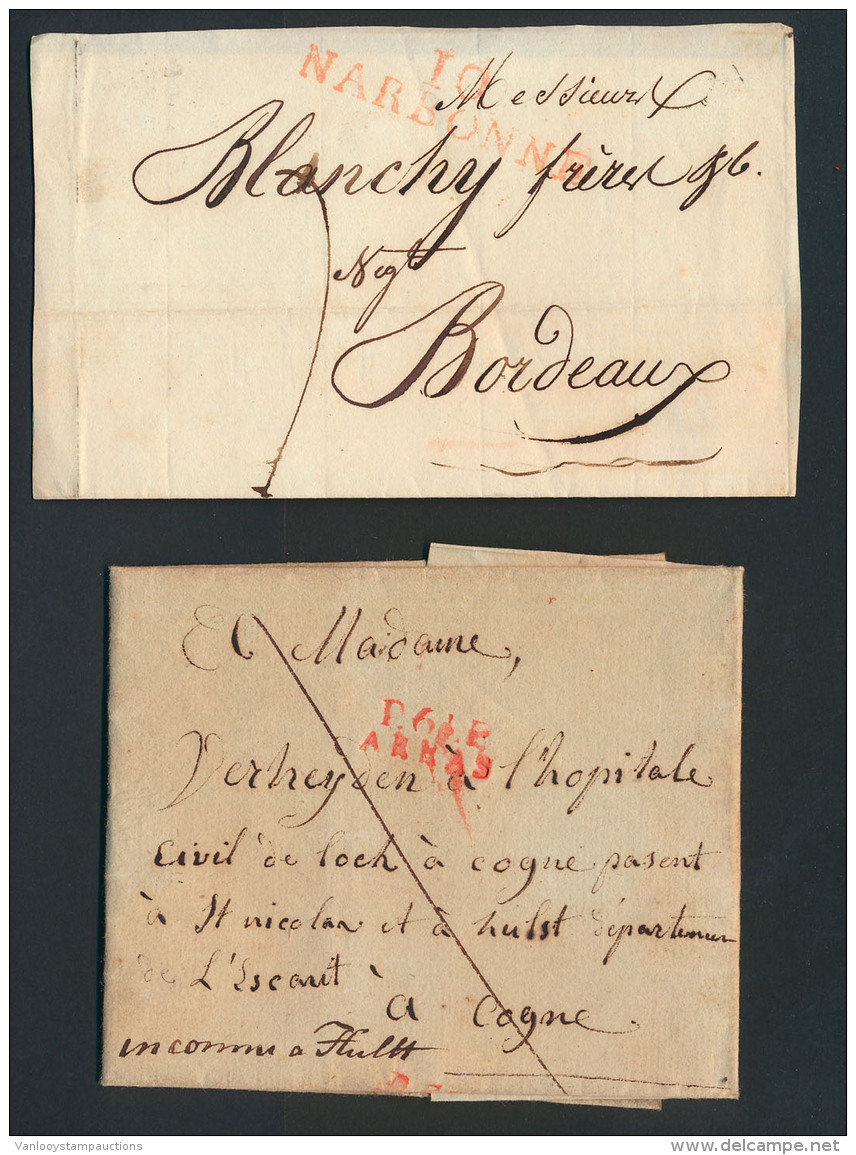 10
NARBONNE
Messieurs
Blanchy frères & C.
Negt
Bordeaux
A Madame,
P.61.P
ARRAS
Verheyden à l'hopitale
civil de loch à cogne pasent
à St nicolas et à hulst département
de L'Escaut
à cogne
inconnu a Hulst
Vanlooystampauctions
delcampe.net